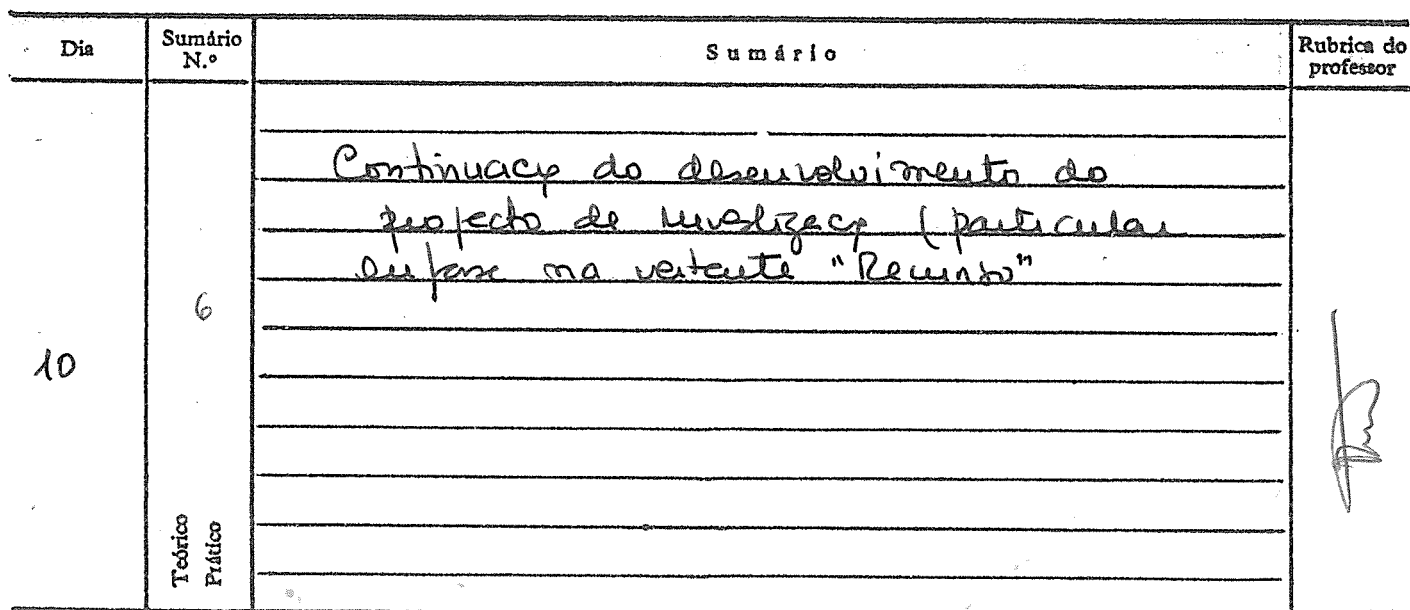 Dia
Sumário
N.º
Sumário
Rubrica do
professor
10
6
Teórico
Prático
Continuação do desenvolvimento do
projecto de investigação (particular
enfase na vertente "Recurso"